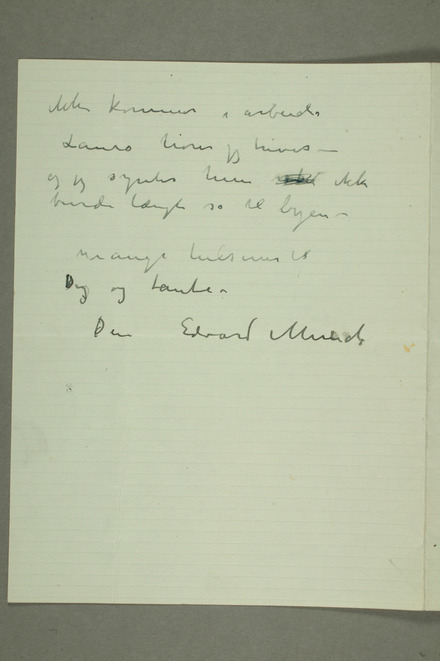 ikke kommer i arbeide
Laura hører jeg trives –
og jeg synes hun ikke
burde længte so til byen –
Mange hilsener til
Dig og tante –
Din Edvard Munch